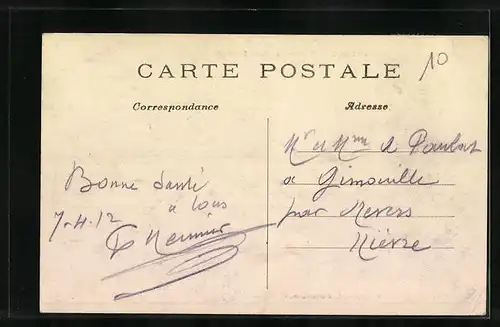 10
CARTE POSTALE
Correspondance
Adresse
Bonne santé
à tous
7-4-12
Meunier
Mr et Mme de
à Gimouille
par Nevers
Nièvre